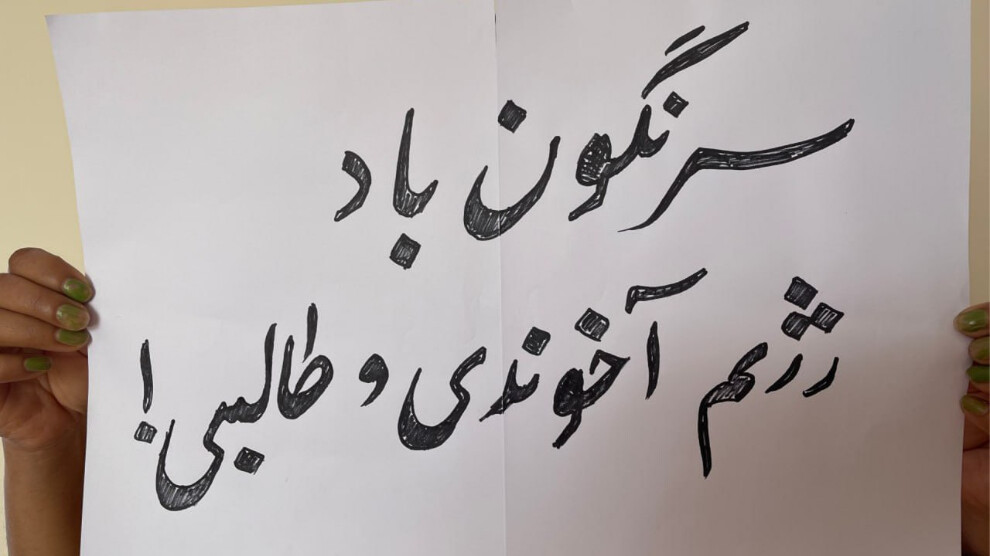 سرنگون باد
رژیم آخوندی و طالبی!